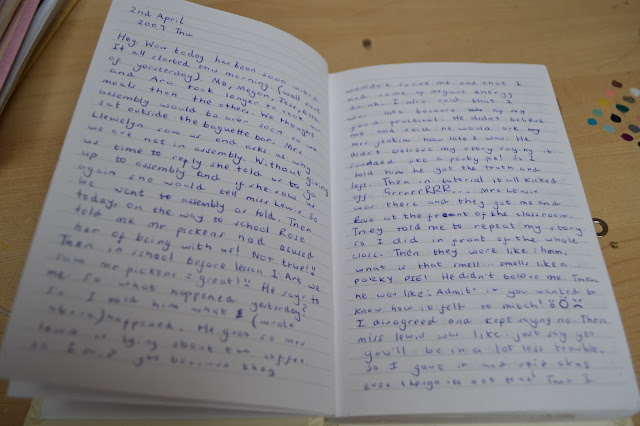 2nd April
2009 Thu
Hey Wow today has been sooo weird.
It all started this morning. (well sort
of yesterday). Me, Megan, Jess, Ellie
and Ara took longer to cook our
meals then the others. We thought
assembly would be over soon so we
sat outside the baguette bar. Mrs
Llewelyn saw us and asks us why
we are not in assembly. Without giving
us time to reply she told us to go
up to assembly and if she saw us
again she would tell miss Lewis. So
we went to assembly as told. Then
today, on the way to school Rose
told me mr pickens had acused
her of being with us! Not true!!
Then in school before lesson 1 Art we
saw mr pickens = great!! He says to
me so what happened yesterday?
So I told him what (wrote
above) happened. He goes so mrs
is lying about
so I'm
wouldn't serve me and that I
had some of megans energy
drink. I also said that I
was late because of my
food practical. He didn't believe
me and said he would ask my
mrs Jenkin how late I was. He
didn't believe my story saying it
smelled like a porky pie! So I
told him he got the truth and
left. Then in tutorial it all kicked
off. GrrrrrRRR... Mrs Lewis
was there and they got me and
Rose at the front of the classroom.
They told me to repeat my story
so I did in front of the whole
class. Then they were like: hmm,
what is that smell: smells like a...
PORKY PIE! He didn't believe me. Then
he was like: Admit it you wanted to
know how it felt to mitch!
I disagreed and kept saying no. Then
miss lewis was like: just say yes
you'll be in a lot less trouble.
So I gave in and said okay
even though its not true! Then I